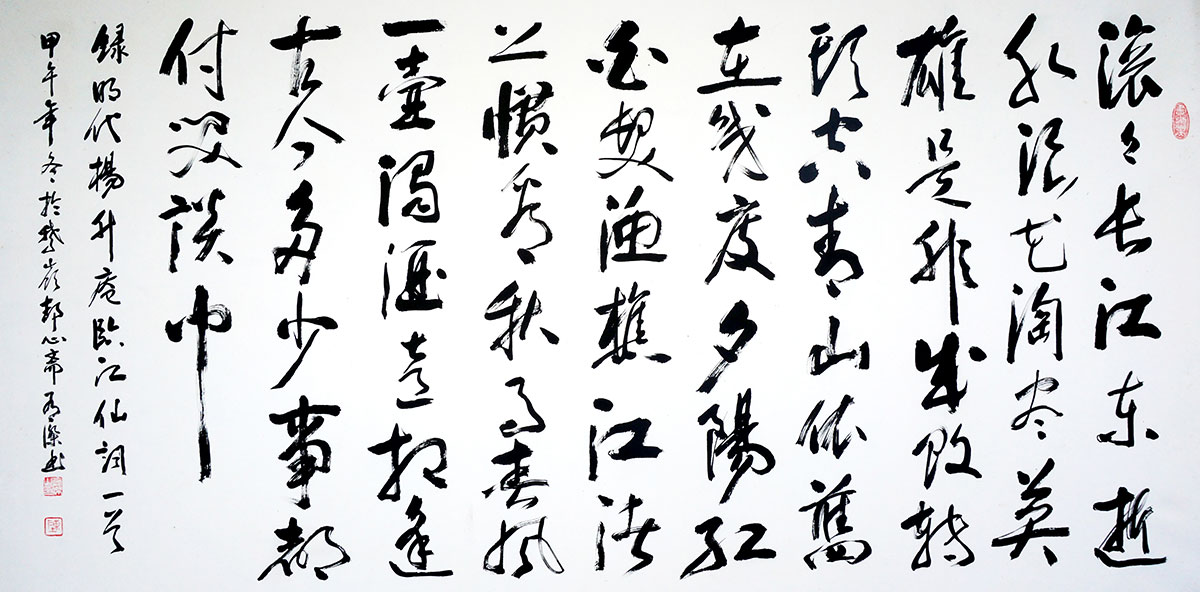 滚々长江东逝
水浪花淘尽英
雄是非成败转
頭空青山依舊
在几度夕陽红
白发渔樵江渚
上惯看秋月春風
一壶濁酒喜相逢
古今多少事都
付笑談中
録明代楊升庵臨江仙詞一首
甲午年冬於嶺心斋书